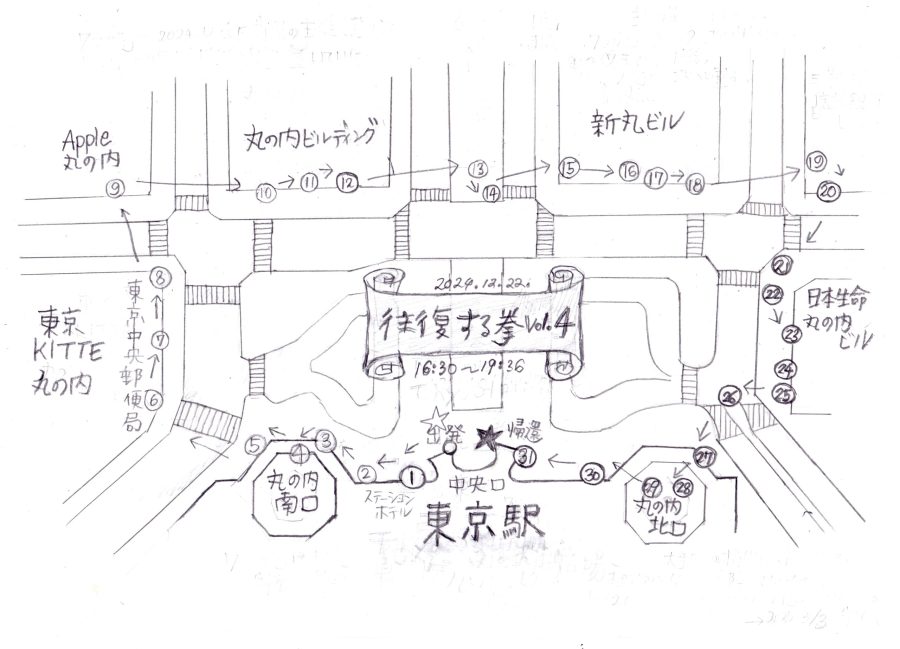 Apple
丸の内
⑨
丸の内ビルディング
⑩ → ⑪ → ⑫
⑬
⑭
新丸ビル
⑮ → ⑯ ⑰ → ⑱
⑲
⑳
㉑
㉒
㉓
㉔
㉕
㉖
日本生命
丸の内
ビル
東京
KITTE
丸の内
東京中央郵便局
⑧
⑦
⑥
2024.12.22.
往復する拳 Vol.4
16:30〜19:36
出発
帰還
⑤
④
③
②
①
丸の内
南口
ステーション
ホテル
中央口
東京駅
㉛
㉚
㉙ ㉘
㉗
丸の内
北口